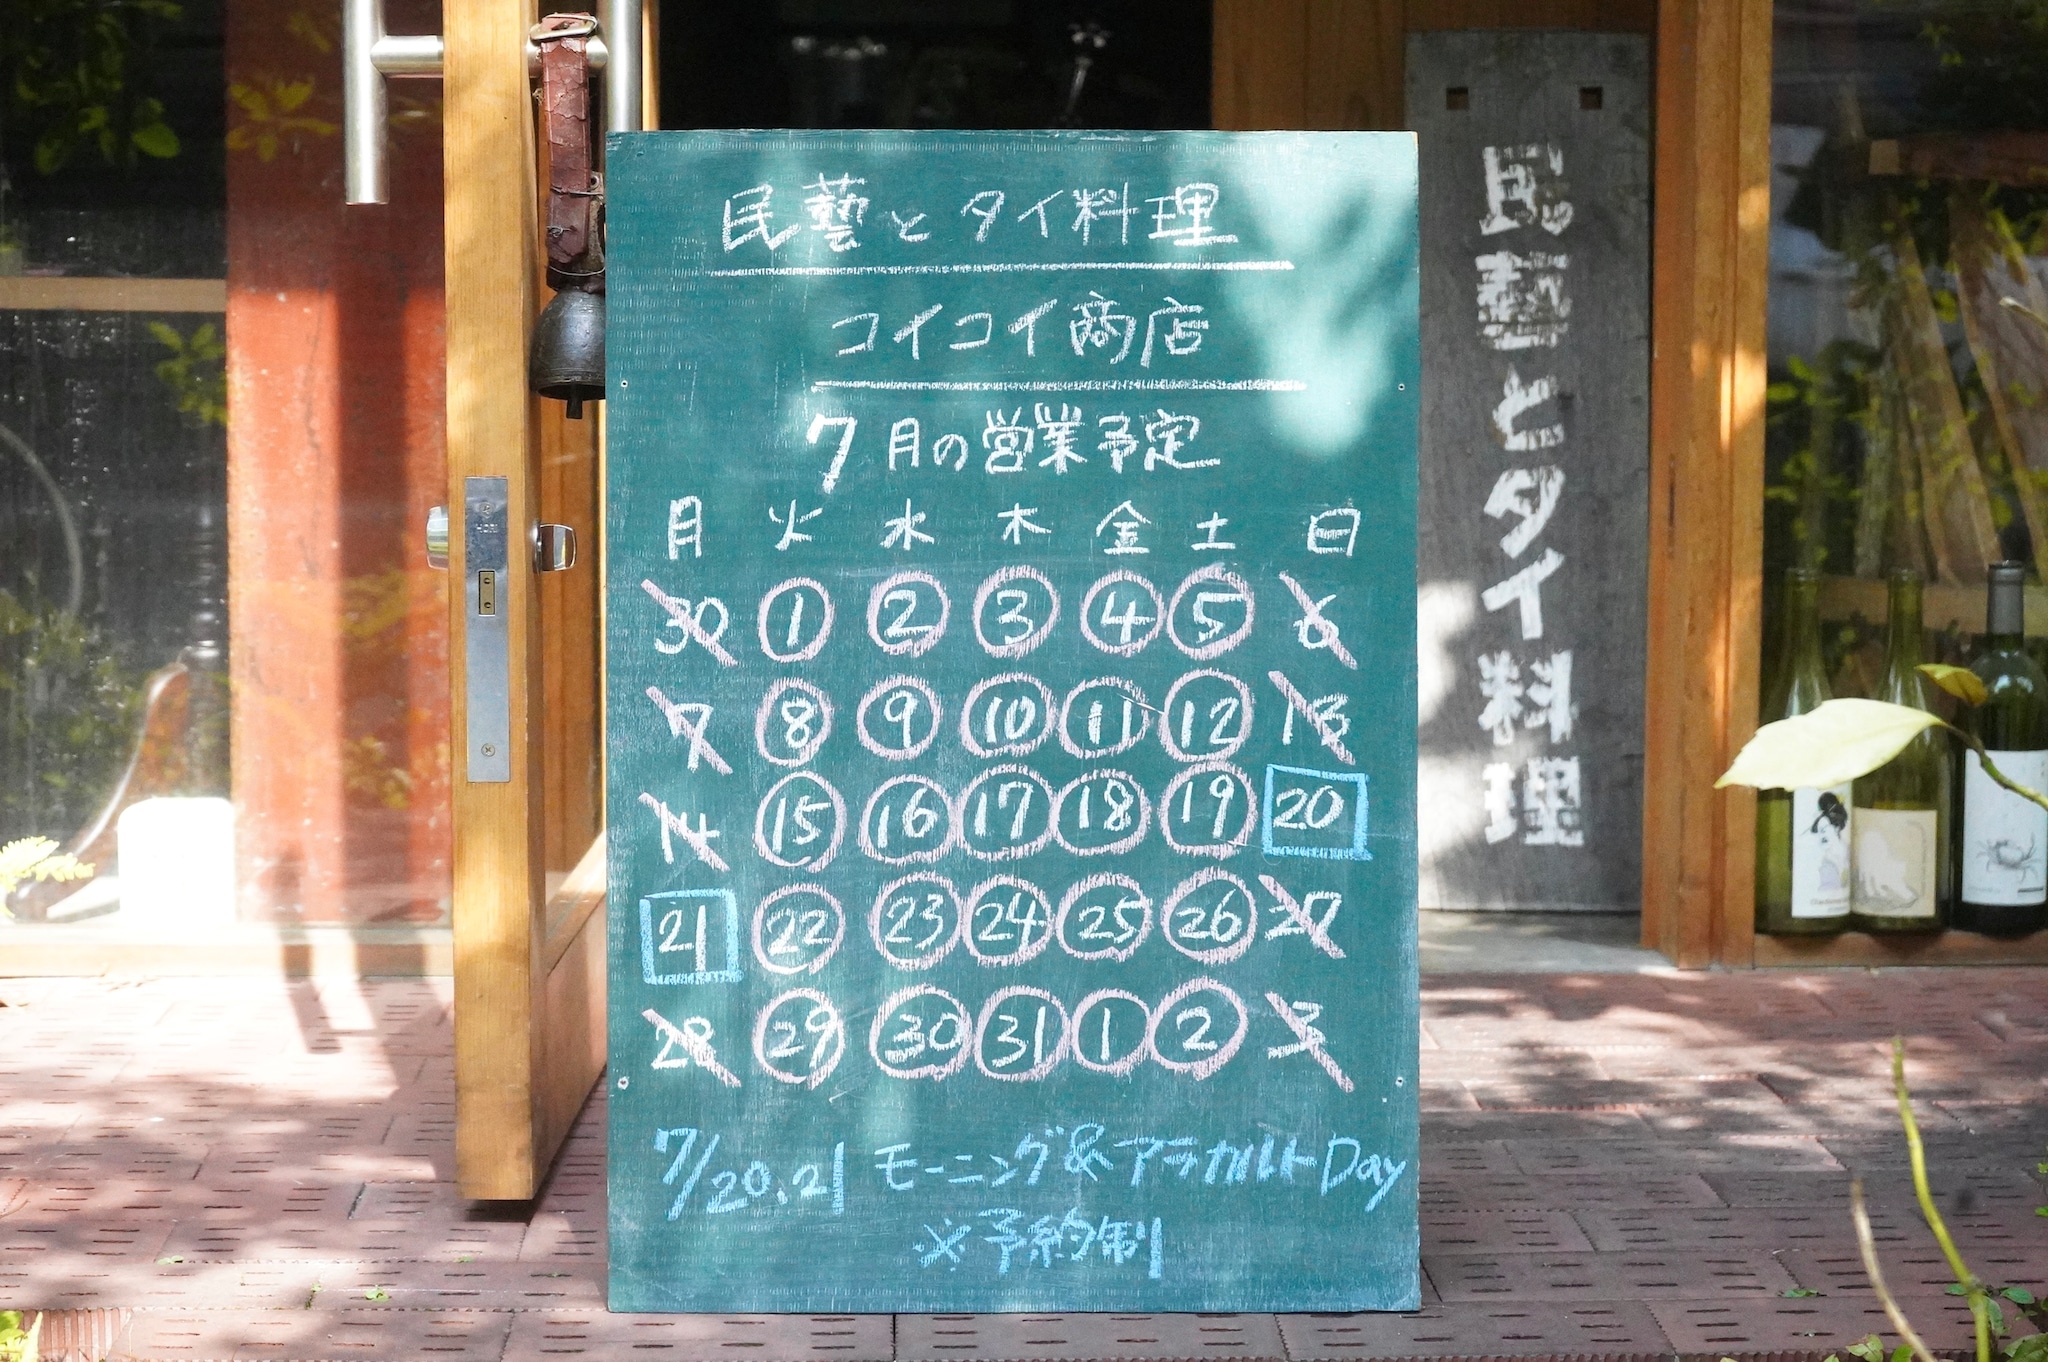 民藝とタイ料理
コイコイ商店
7月の営業予定
月 火 水 木 金 土 日
30 1 2 3 4 5 6
7 8 9 10 11 12 13
14 15 16 17 18 19 20
21 22 23 24 25 26 27
28 29 30 31 1 2 3
7/20.21 モーニング&アラカルトDay
※予約制
民藝とタイ料理